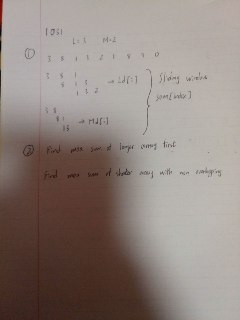 1031
L=3 M=2
① 3 8 1 3 2 1 8 9 0
3 8 1
8 1 3 → Ld[:]
1 3 2
Sliding window
sum[index]
3 8
8 1
1 3 → Md[:]
② Find max sum of longer array first
Find max sum of shorter array with non overlapping